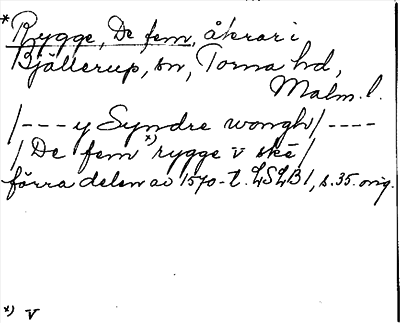 * Rygge, De fem, åkrar i
Bjällerup, sn, Torna hd,
Malm. l.
/--- y Syndre wongh/----
/ De fem *) rygge v̄ skē /
förra delen av 1570-t. LSLB 1, s. 35. orig.
*) v